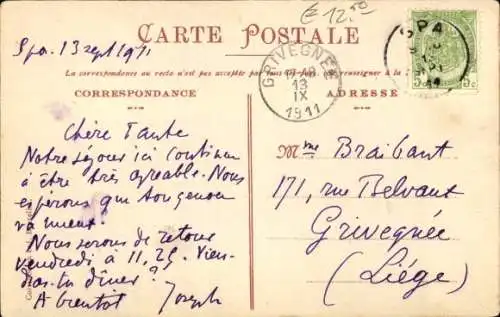 € 12.50
CARTE POSTALE
Spa, 13 sept 1911
La correspondance au recto n'est pas acceptée par tous les pays
se renseigner à la
GRIVEGNÉE
13
IX
1911
SPA
5c 5c
CORRESPONDANCE
ADRESSE
Chère Tante
Notre séjour ici continue
à être très agréable. Nous
espérons que
va mieux.
Nous serons de retour
vendredi à 11,25. Vien-
dras-tu dîner?
A bientôt Joseph
Mme Braibant
171, rue Belvaux
Grivegnée
(Liége)